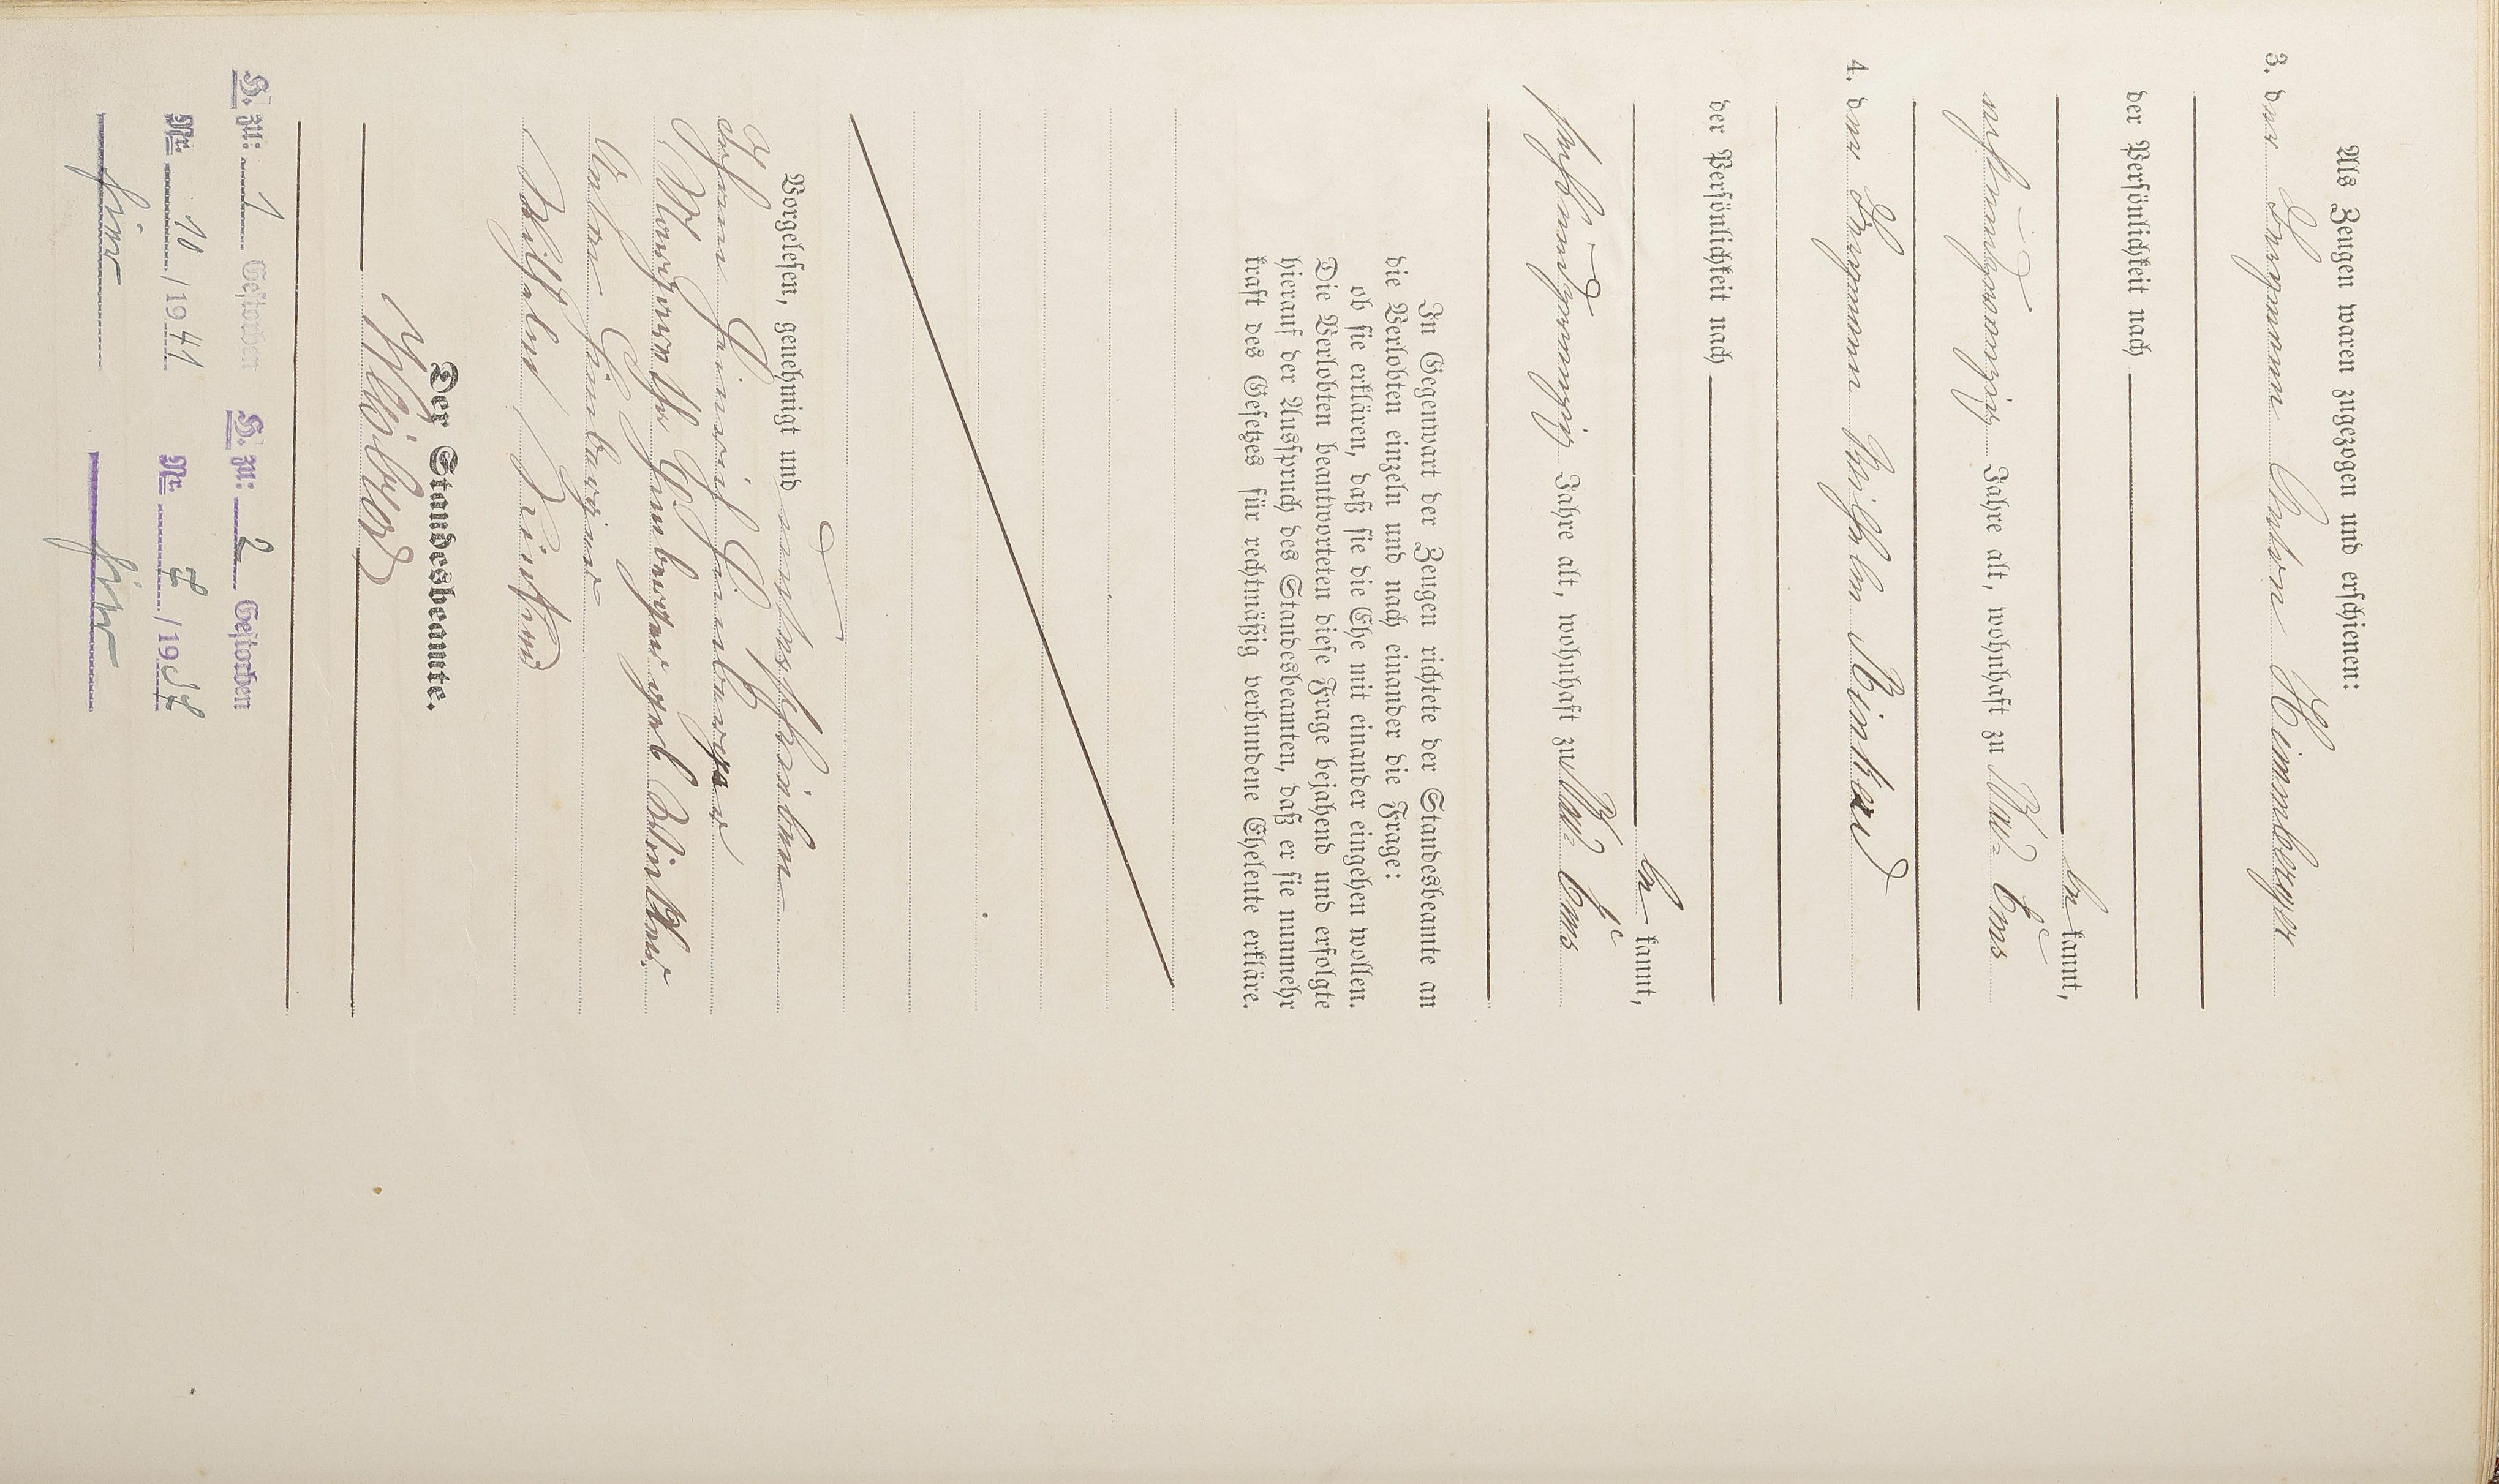 Als Zeugen waren zugezogen und erschienen:
3. der Bergmann Anton Himmberger
der Persönlichkeit nach
be kannt,
achtundzwanzig Jahre alt, wohnhaft zu Bad-Ems
4. der Bergmann Wilhelm Rinker
der Persönlichkeit nach
be kannt,
fünfundzwanzig Jahre alt, wohnhaft zu Bad-Ems
In Gegenwart der Zeugen richtete der Standesbeamte an
die Verlobten einzeln und nach einander die Frage:
ob sie erklären, daß sie die Ehe mit einander eingehen wollen.
Die Verlobten beantworteten diese Frage bejahend und erfolgte
hierauf der Ausspruch des Standesbeamten, daß er sie nunmehr
kraft des Gesetzes für rechtmäßig verbundene Eheleute erkläre.
Vorgelesen, genehmigt und unterschrieben
Heinrich
geb.
Anton
Wilhelm
Der Standesbeamte.
H. M: 1 Gestorben
Nr. 10 / 1941
H. M: 2 Gestorben
Nr.
/ 19